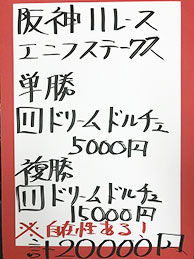 阪神11レース
エニフステークス
単勝
11 ドリームドルチェ
5000円
複勝
11 ドリームドルチェ
15000円
※自在性ある!
計20000円